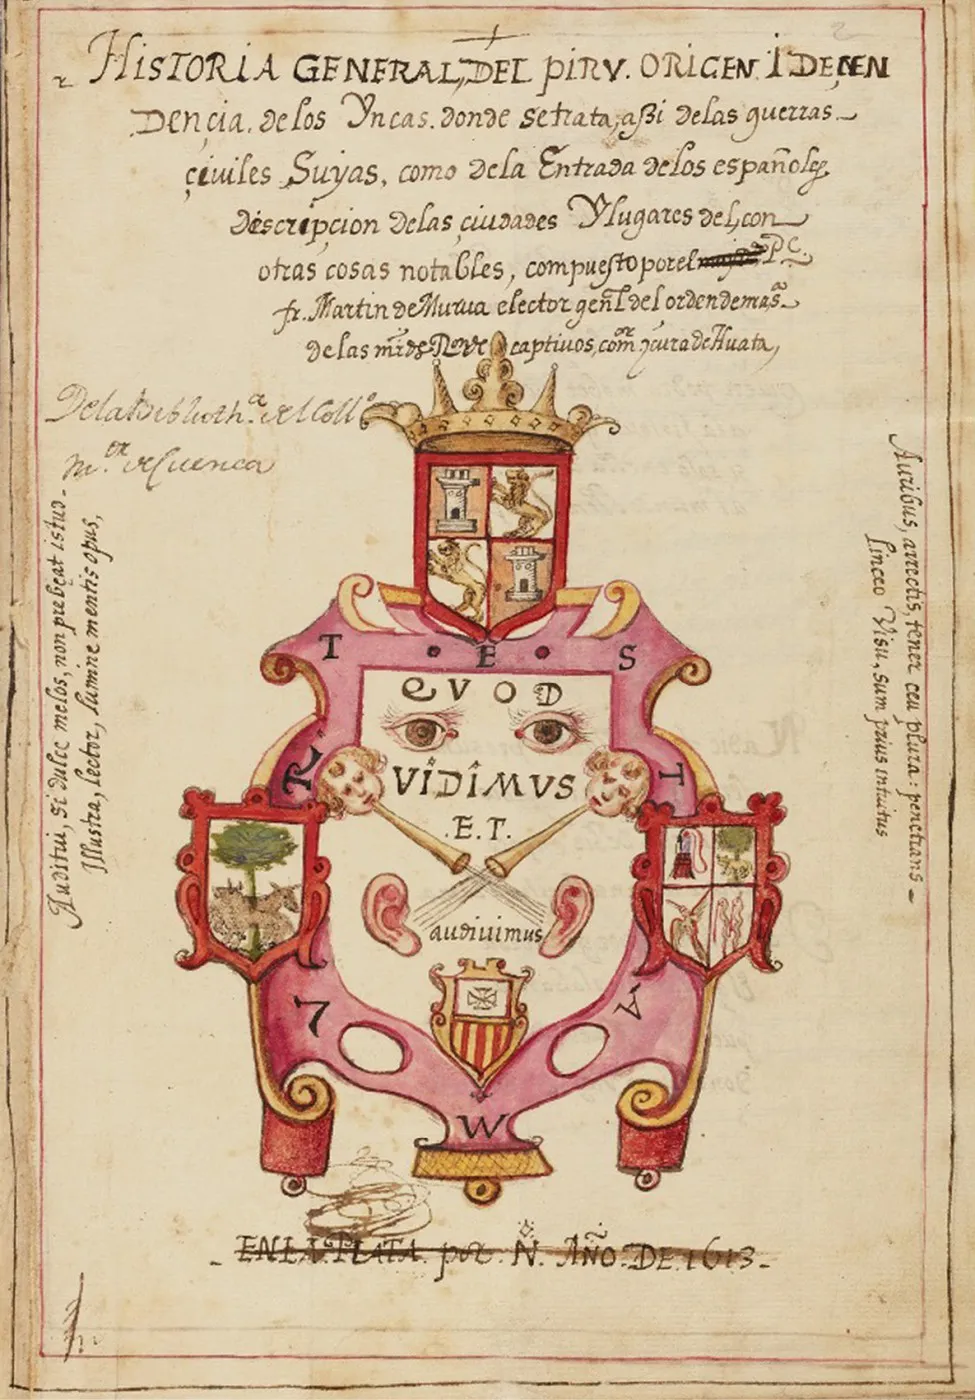 HISTORIA GENERAL, DEL PIRV. ORIGEN I DEÇEN
DENCIA. de los Yncas. donde se trata, aßi de las guerras
çiuiles Suyas, como de la Entrada de los españoles,
descripçion de las çiudades Y lugares del, con
otras cosas notables, compuesto por el P.e
fr. Martin de Murua elector gen̄l del orden de ma s.a
de las m̄rdes captiuos, com.or y cura de Huata,
De la Biblioth.a del Coll.o
m.or de Cuenca
Auditui, si dulce melos, non prebeat istud
Illustra, lector, lumine mentis opus,
Auribus, arrectis, tener ceu plura: penetrans
linceo Visu, sum prius intuitus
T E S
QVOD
VIDIMVS
.E.T.
audiuimus
T
A
W
EN LA PLATA por N. AÑO. DE. 1613.